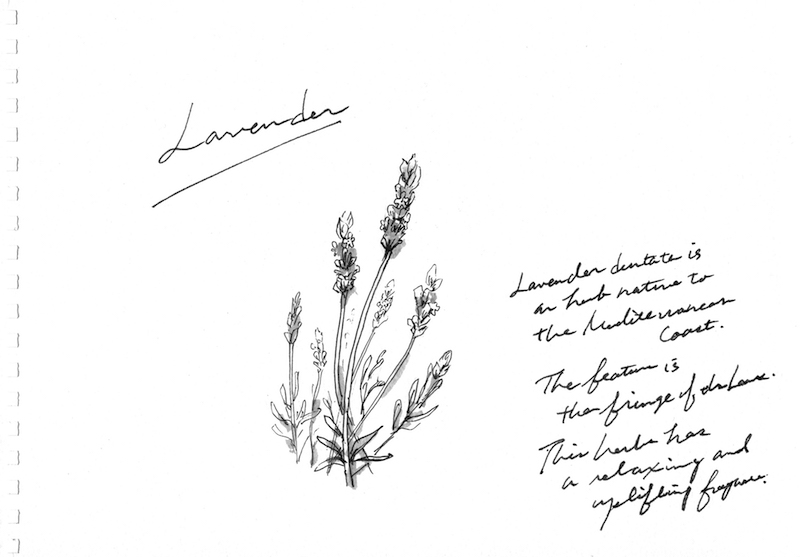 Lavender
Lavender dentata is
an herb native to
the Mediterranean
Coast.
The feature is
the fringe of the leaves.
This herbs has
a relaxing and
uplifting fragrance.